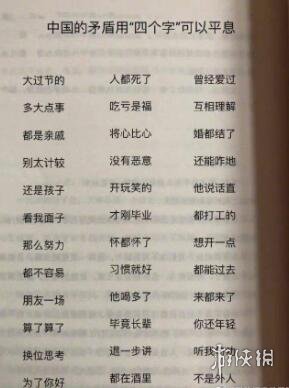 中国的矛盾用“四个字”可以平息
大过节的 人都死了 曾经爱过
多大点事 吃亏是福 互相理解
都是亲戚 将心比心 婚都结了
别太计较 没有恶意 还能咋地
还是孩子 开玩笑的 他说话直
看我面子 才刚毕业 都打工的
那么努力 怀都怀了 想开一点
都不容易 习惯就好 都能过去
朋友一场 他喝多了 来都来了
算了算了 毕竟长辈 你还年轻
换位思考 退一步讲 听我
为了你好 都在酒里 不是外人
游侠网